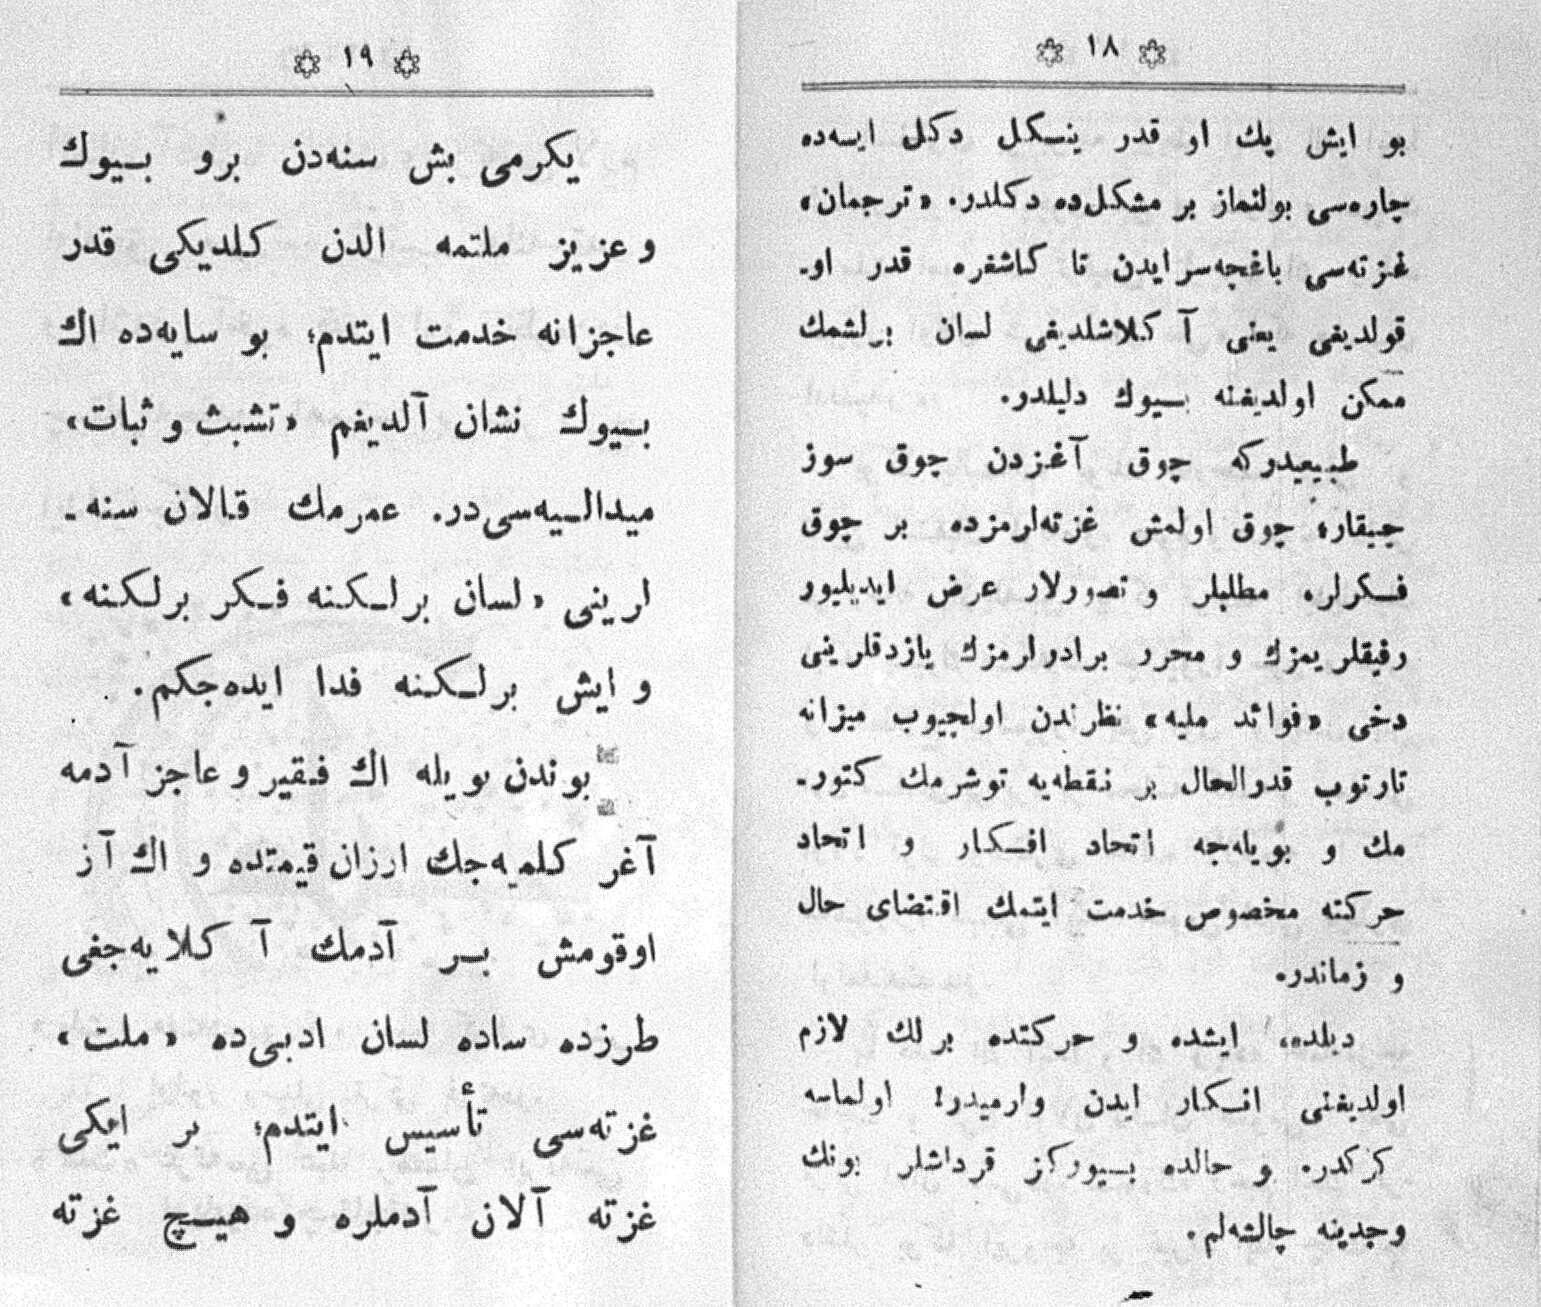 ١٨
بو ایش پك او قدر ینـكل دكل ایسه‌ده
چاره‌سی بولنماز بر مشكل‌ده دكلدر. «ترجمان»
غزته‌سی باغچه‌سرایدن تا كاشغره قدر او-
قولدیغی یعنی آ كلاشلدیغی لسان برلشمك
ممكن اولدیغنه بـیوك دلیلدر.
طبیعیدركه چوق آغزدن چوق سوز
چیقار؛ چوق اولمش غزته‌لرمزده بر چوق
فـكرلر، مطلبلر و تصورلار عرض ایدیلیور
رفیقلریمزك و محرر برادرلرمزك یازدقلرینی
دخی «فوائد ملیه» نظرندن اولچیوب میزانه
تارتوب قدرالحال بر نقطه‌یه توشرمك كتور-
مك و بویله‌جه اتحاد افـكار و اتحاد
حركته مخصوص خدمت ایتمك اقتضای حال
و زماندر.
دیلده، ایشده و حركتده برلك لازم
اولدیغنی انـكار ایدن وارمیدر! اولماسه
كركدر. و حالده بـیوركز قرداشلر بونك
وجدینه چالشه‌لم.
١٩
یكرمی بش سنه‌دن برو بـیوك
و عزیز ملتمه الدن كلدیكی قدر
عاجزانه خدمت ایتدم؛ بو سایه‌ده اك
بـیوك نشان آلدیغم «تشبث و ثبات»
میدالـیه‌سی‌در. عمرمك قالان سنه-
لرینی «لسان برلـكنه فـكر برلـكنه»
و ایش برلـكنه فدا ایده‌جكم.
بوندن بویله اك فقیر و عاجز آدمه
آغر كلمیه‌جك ارزان قیمتده و اك آز
اوقومش بـر آدمك آ كلایه‌جغی
طرزده ساده لسان ادبی‌ده «ملت»
غزته‌سی تأسیس ایتدم؛ بر ایكی
غزته آلان آدملره و هیـچ غزته